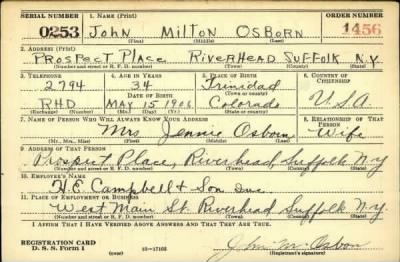 SERIAL NUMBER 1. NAME (Print) ORDER NUMBER
0253 JOHN MILTON OSBORN 1456
(First) (Middle) (Last)
2. ADDRESS (Print)
PROSPECT PLACE RIVERHEAD SUFFOLK N.Y.
(Number and street or R. F. D. number) (Town) (County) (State)
3. TELEPHONE 4. AGE IN YEARS 5. PLACE OF BIRTH 6. COUNTRY OF CITIZENSHIP
2794 34 Trinidad
DATE OF BIRTH (Town or county)
RHD MAY 15 1906 Colorado U.S.A
(Exchange) (Number) (Mo.) (Day) (Yr.) (State or country)
7. NAME OF PERSON WHO WILL ALWAYS KNOW YOUR ADDRESS 8. RELATIONSHIP OF THAT PERSON
Mrs Jennie Osborn Wife
(Mr., Mrs., Miss) (First) (Middle) (Last)
9. ADDRESS OF THAT PERSON
Prospect Place, Riverhead, Suffolk N.Y.
(Number and street or R. F. D. number) (Town) (County) (State)
10. EMPLOYER'S NAME
H.E. Campbell & Son Inc.
11. PLACE OF EMPLOYMENT OR BUSINESS
West Main St. Riverhead Suffolk N.Y.
(Number and street or R. F. D. number) (Town) (County) (State)
I AFFIRM THAT I HAVE VERIFIED ABOVE ANSWERS AND THAT THEY ARE TRUE.
REGISTRATION CARD John M. Osborn
D. S. S. Form 1 16—17105 (Registrant's signature)